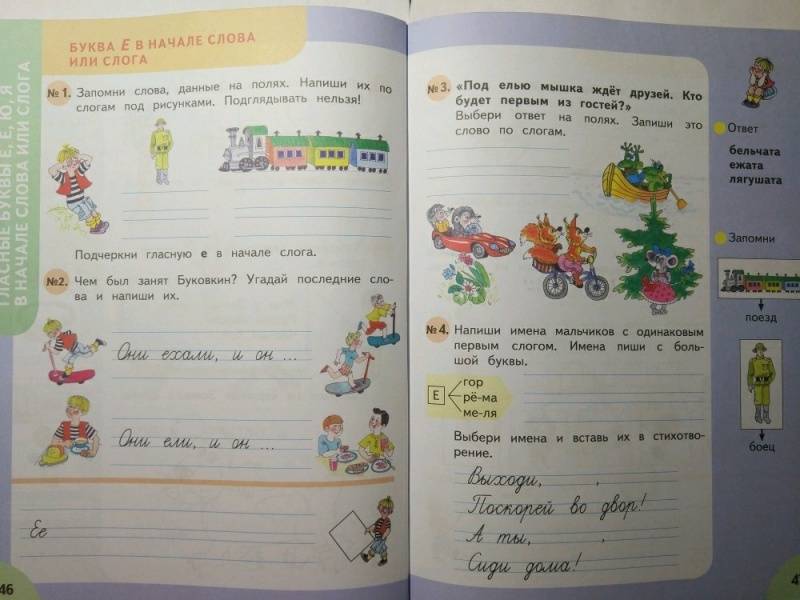 ГЛАСНЫЕ БУКВЫ Е, Ё, Ю, Я
В НАЧАЛЕ СЛОВА ИЛИ СЛОГА
БУКВА Е В НАЧАЛЕ СЛОВА
ИЛИ СЛОГА
№1. Запомни слова, данные на полях. Напиши их по
слогам под рисунками. Подглядывать нельзя!
Подчеркни гласную е в начале слога.
№2. Чем был занят Буковкин? Угадай последние сло-
ва и напиши их.
Они ехали, и он ...
Они ели, и он ...
Ее
46
№3. «Под елью мышка ждёт друзей. Кто
будет первым из гостей?»
Выбери ответ на полях. Запиши это
слово по слогам.
№4. Напиши имена мальчиков с одинаковым
первым слогом. Имена пиши с боль-
шой буквы.
Е
гор
рё-ма
ме-ля
Выбери имена и вставь их в стихотво-
рение.
Выходи, ,
Поскорей во двор!
А ты, ,
Сиди дома!
Ответ
бельчата
ежата
лягушата
Запомни
поезд
боец